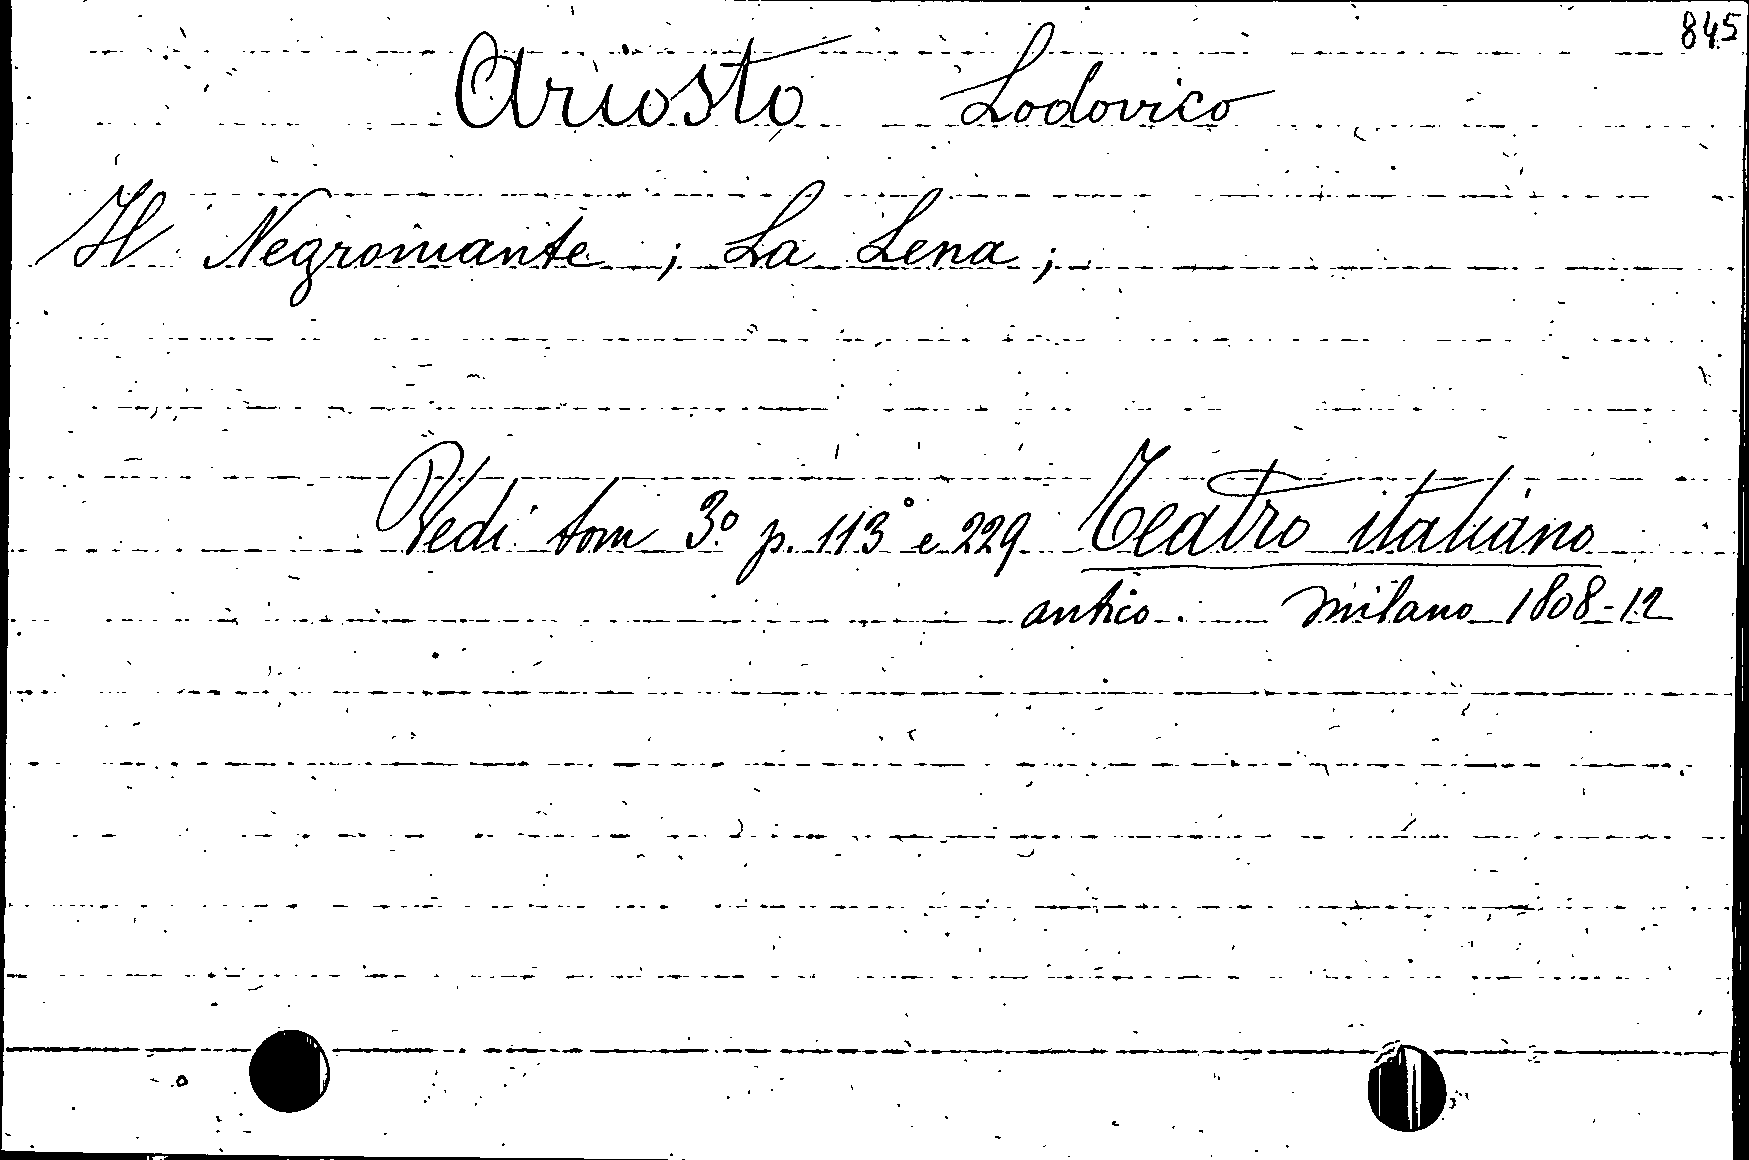 845
Ariosto Lodovico
Il Negromante ; La Lena ;
Vedi tom 3º p. 113 e 229 Teatro italiano
antico. Milano 1808-12